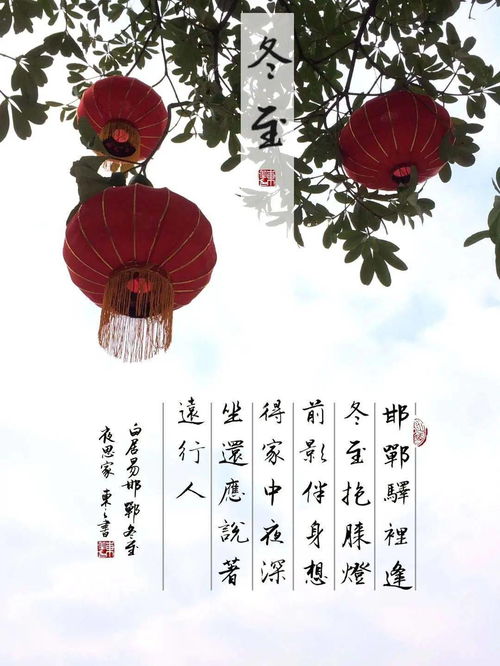 冬至
邯鄲驛裡逢
冬至抱膝燈
前影伴身想
得家中夜深
坐還應說著
遠行人
白居易邯鄲冬至
夜思家 東々書